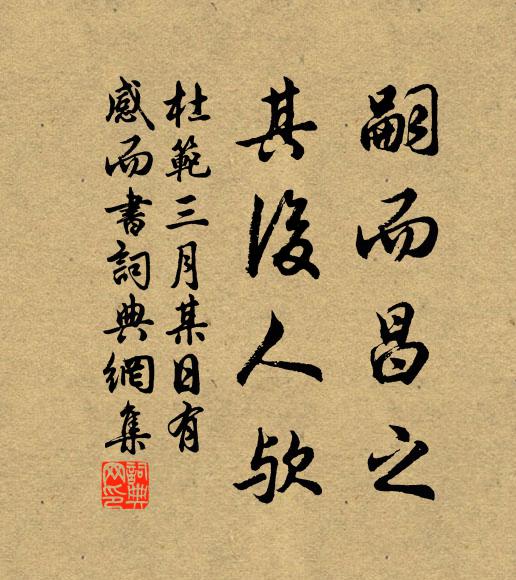 嗣而昌之
其後人欤
杜範三月某日有
感而書詞典網集
詞典网印